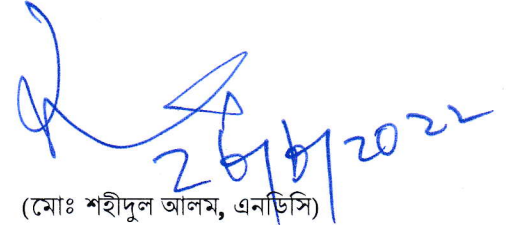 ২৮/৮/২০২২
(মোঃ শহীদুল আলম, এনডিসি)